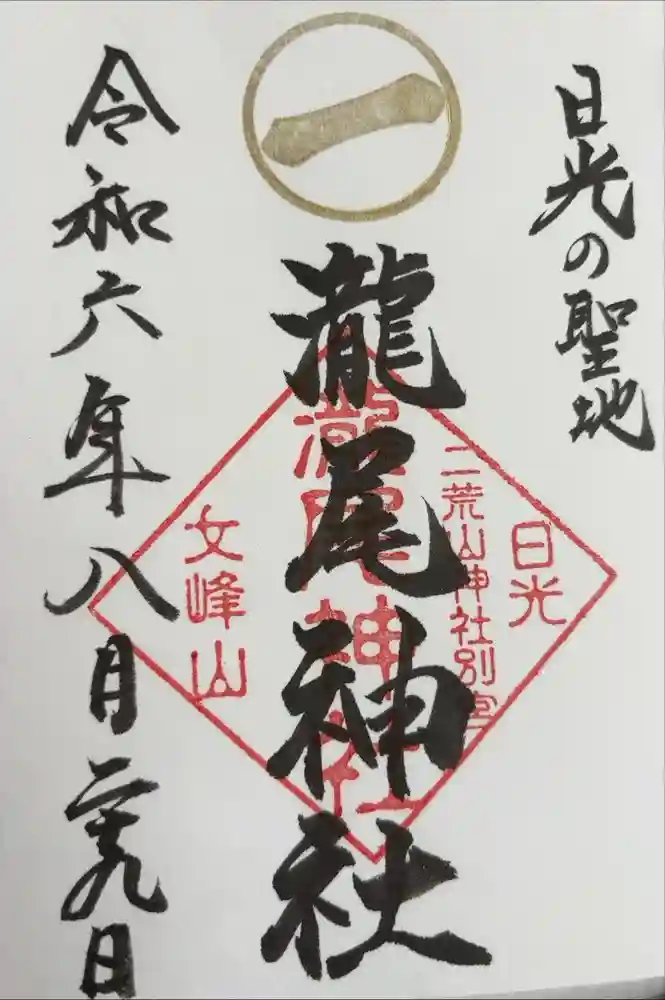 日光の聖地
一
瀧尾神社
日光
二荒山神社別宮
瀧尾神社
女峰山
令和六年八月二十九日